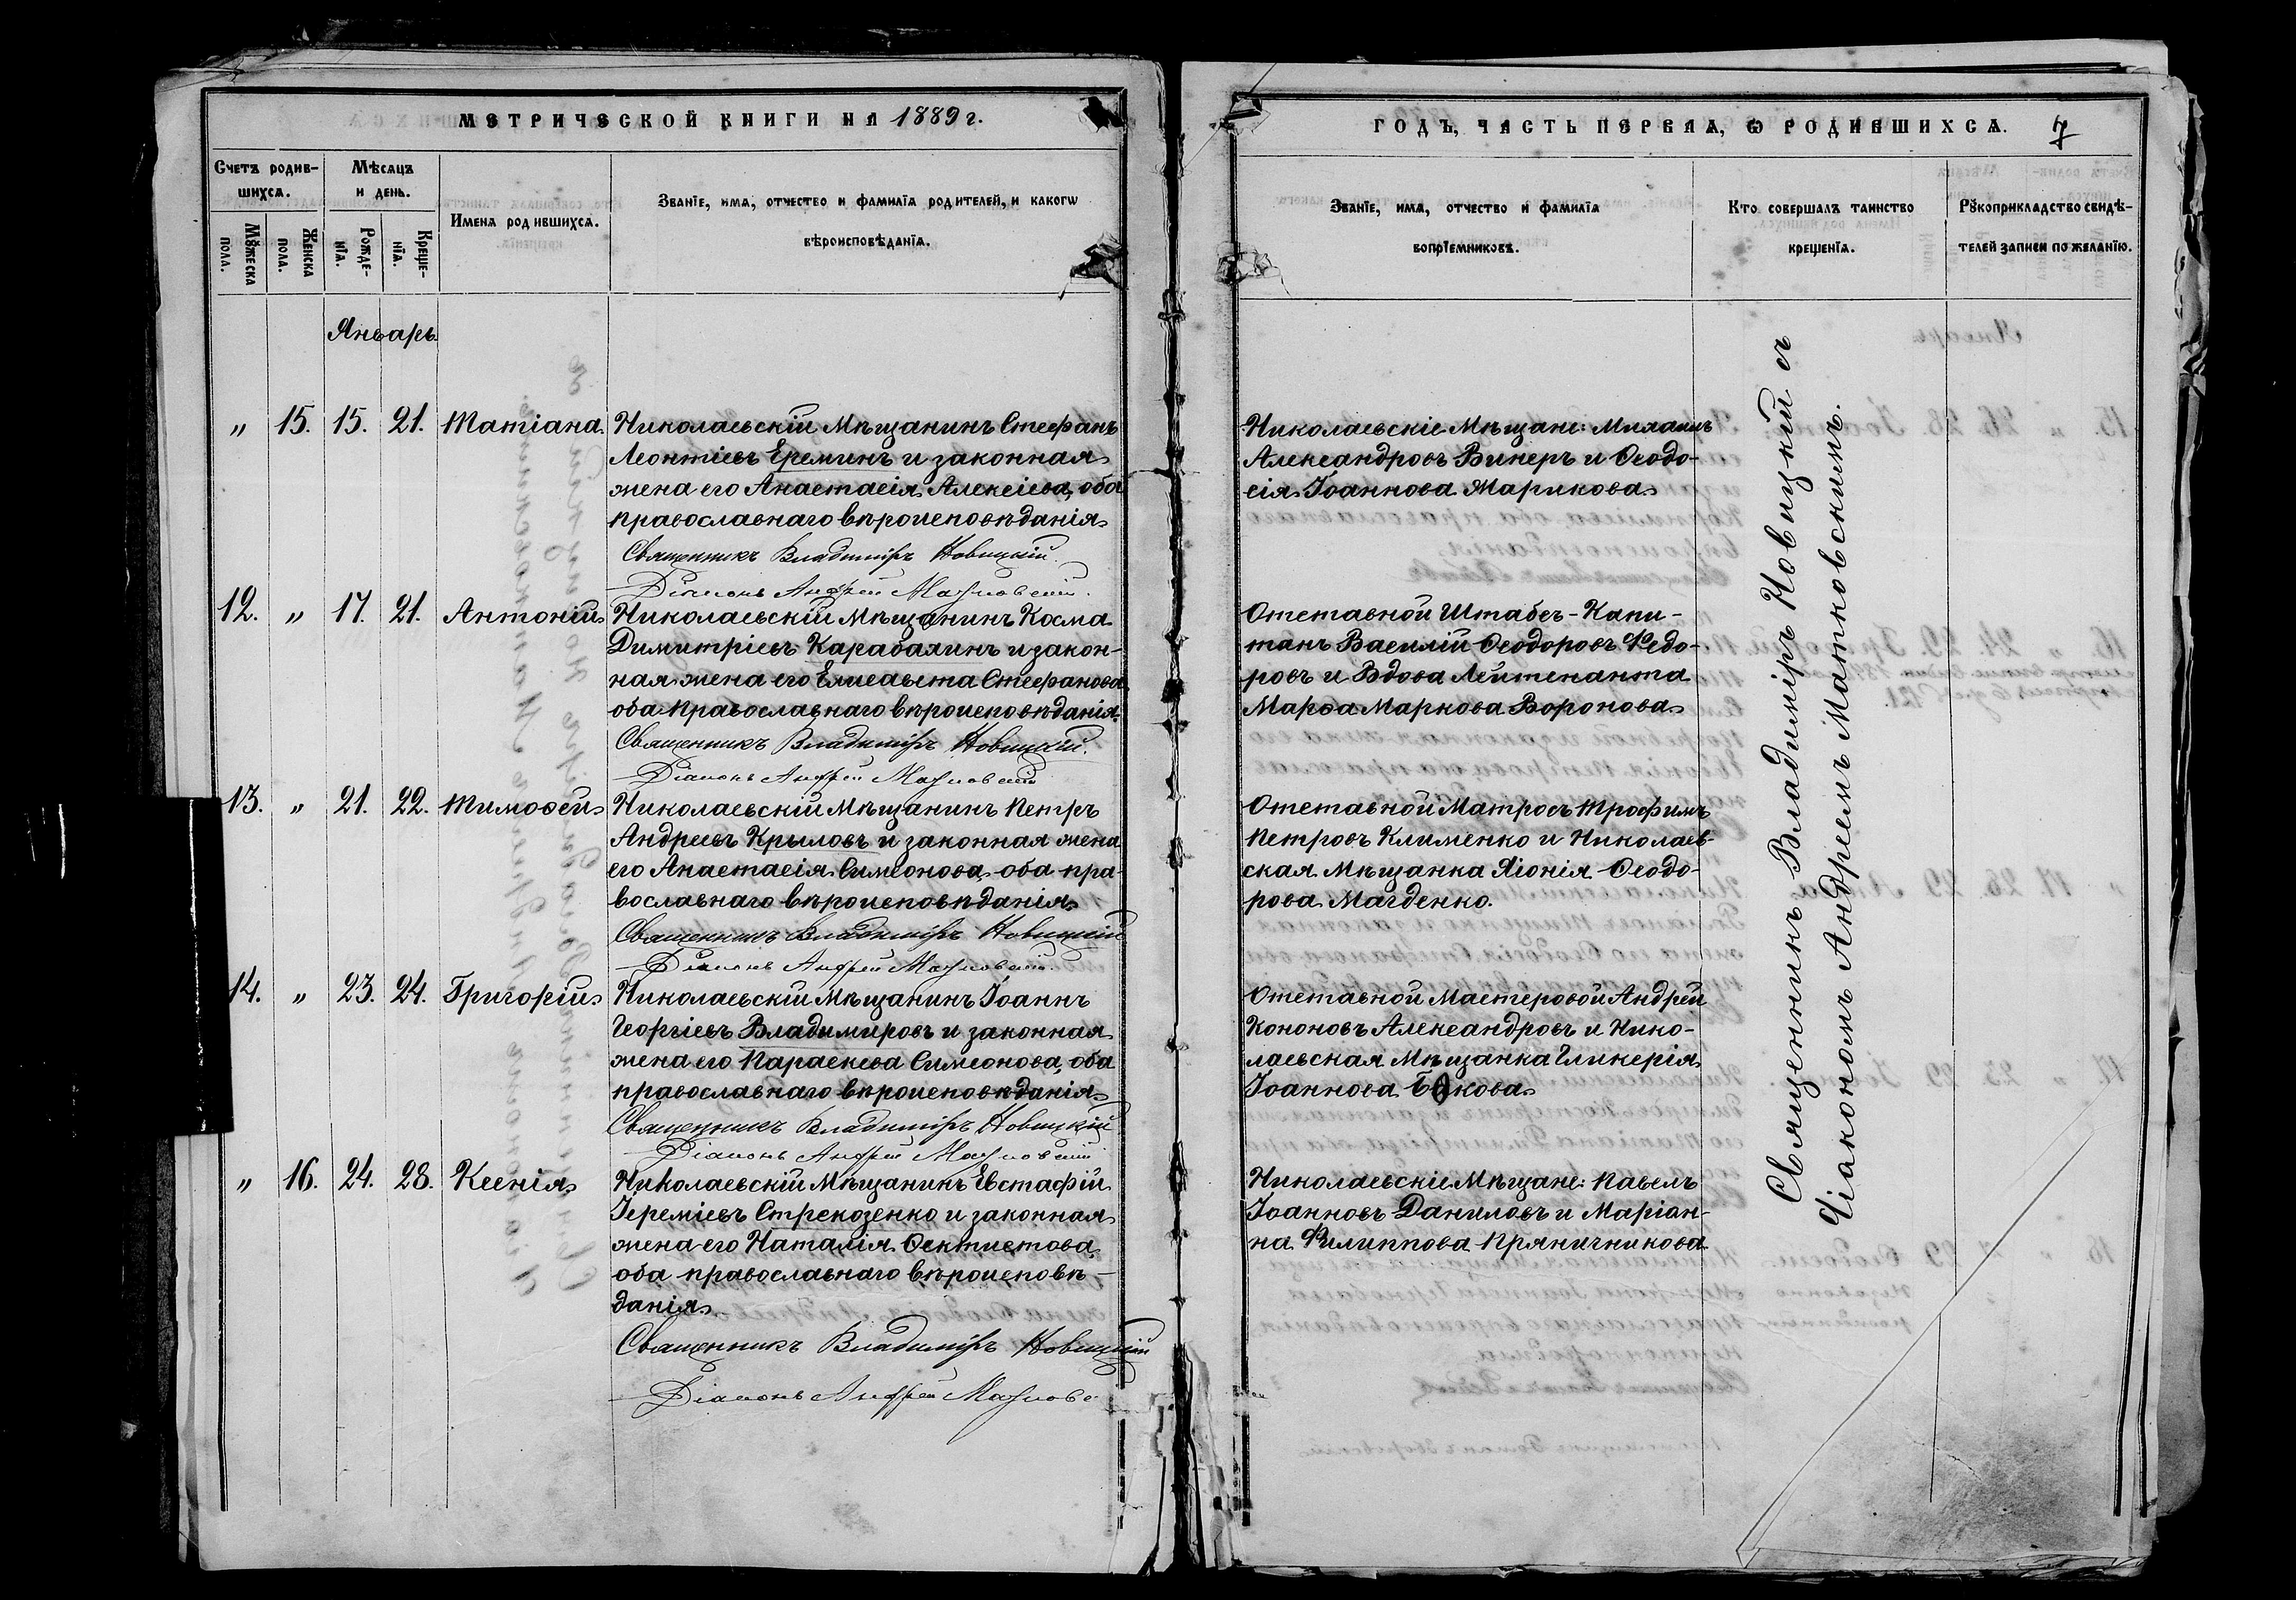 МЕТРИЧЕСКОЙ КНИГИ НА 1889 г.
Счетъ родив-
шихся.
Мѣсяцъ
и день.
Имена родившихся.
Званіе, имя, отчество и фамилія родителей, и какогѡ
вѣроисповѣданія.
Мꙋжеска
пола.
Женска
пола.
Рожде-
нія.
Креще-
нія.
Январь
" 15. 15. 21. Татіана
Николаевскій Мѣщанинъ Стефанъ
Леонтіевъ Ереминъ и законная
жена его Анастасія Алексіева, оба
православнаго вѣроисповѣданія
Священникъ Владиміръ Новицкій.
Діаконъ Андрей Матковскій.
12. " 17. 21. Антоній
Николаевскій Мѣщанинъ Косма
Димитріевъ Карабалинъ и закон-
ная жена его Елисавета Стефанова
оба православнаго вѣроисповѣданія.
Священникъ Владиміръ Новицкій.
Діаконъ Андрей Матковскій
13. " 21. 22. Тимоѳей
Николаевскій Мѣщанинъ Петръ
Андреевъ Крыловъ и законная жена
его Анастасія Симеонова, оба пра-
вославнаго вѣроисповѣданія
Священникъ Владиміръ Новицкій
Діаконъ Андрей Матковскій.
14. " 23. 24. Григорій
Николаевскій Мѣщанинъ Іоаннъ
Георгіевъ Владимировъ и законная
жена его Параскева Симеонова, оба
православнаго вѣроисповѣданія
Священникъ Владиміръ Новицкій
Діаконъ Андрей Матковскій
" 16. 24. 28. Ксенія
Николаевскій Мѣщанинъ Евстафій
Іереміевъ Стрекозенко и законная
жена его Наталія Ѳектистова
оба православнаго вѣроисповѣ-
данія
Священникъ Владиміръ Новицкій
Діаконъ Андрей Матковс
ГОДЪ, ЧАСТЬ ПЕРВАЯ, Ѡ РОДИВШИХСЯ. 7
Званіе, имя, отчество и фамилія
вопріемниковъ.
Кто совершалъ таинство
крещенія.
Рꙋкоприкладство свидѣ-
телей записи по желанію.
Николаевскіе Мѣщане: Михаилъ
Александровъ Винеръ и Ѳеодо-
сія Іоаннова Марикова
Отставной Штабсъ-Капи-
танъ Василій Ѳеодоровъ Федо-
ровъ и Вдова Лейтенанта
Марѳа Маркова Воронова
Отставной Матросъ Трофимъ
Петровъ Клименко и Николаев-
ская Мѣщанка Хіонія Ѳеодо-
рова Магденко.
Отставной Мастеровой Андрей
Кононовъ Александровъ и Нико-
лаевская Мѣщанка Гликерія
Іоаннова
Николаевскіе Мѣщане: Павелъ
Іоанновъ Даниловъ и Маріан-
на Филиппова Пряничникова
Священникъ Владиміръ Новицкій съ
Діакономъ Андреемъ Матковскимъ.